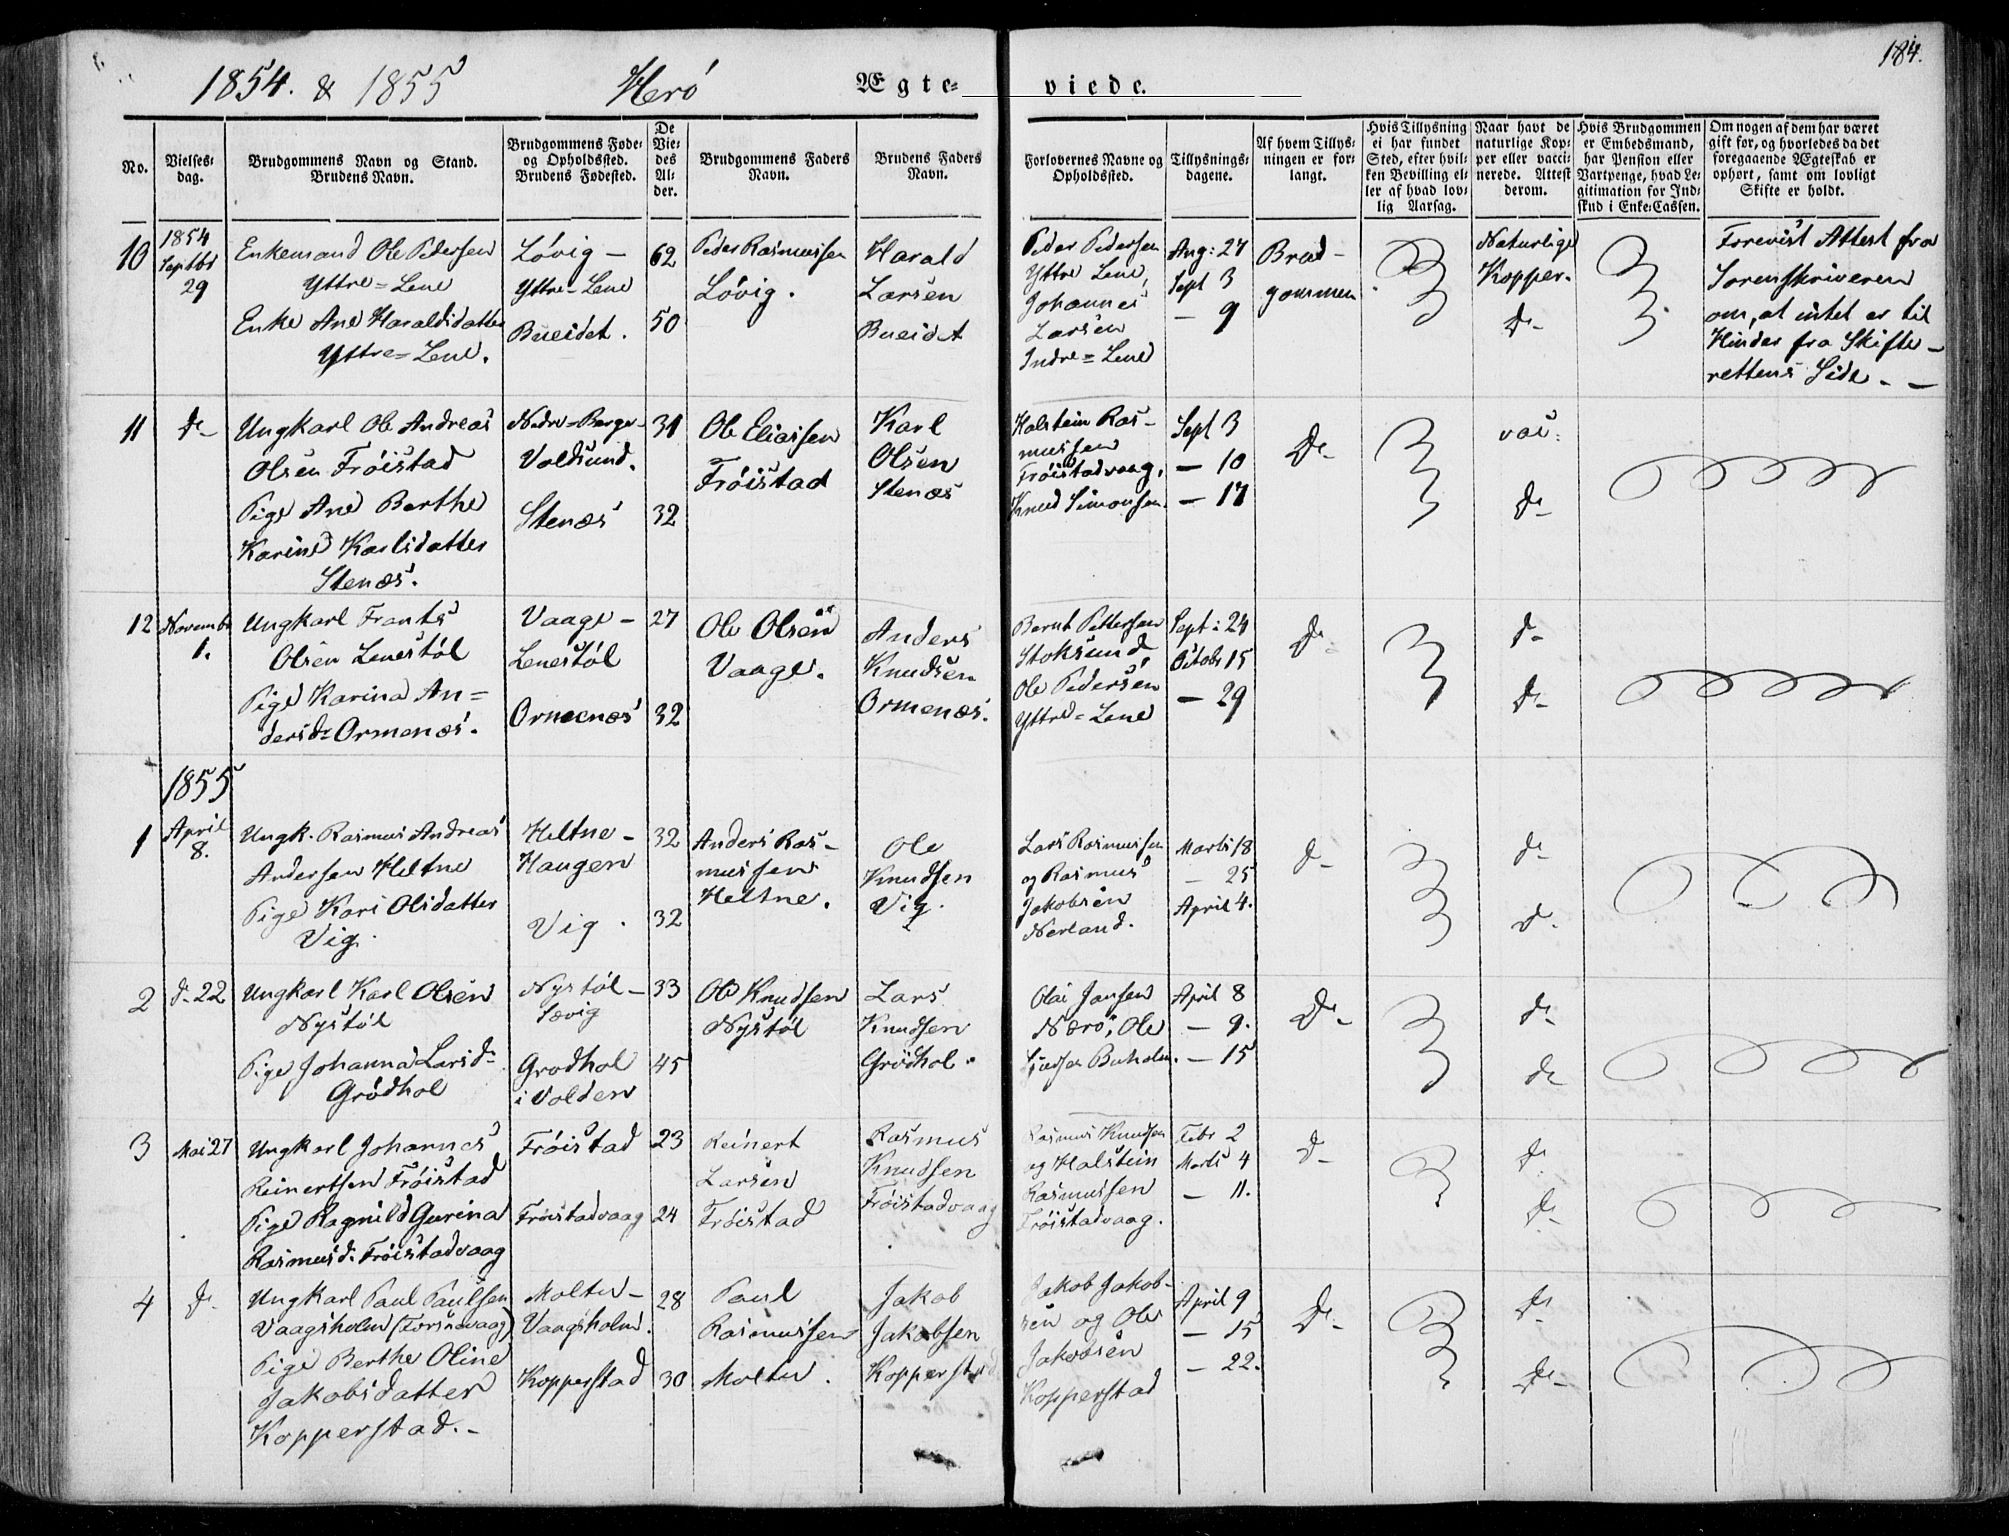 184.
1854. & 1855 Herö Ægte- viede.
No.
Vielses-
dag.
Brudgommens Navn og Stand.
Brudens Navn.
Brudgommens Føde-
og Opholdssted.
Brudens Fødested.
De
Vie-
des
Al-
der.
Brudgommens Faders
Navn.
Brudens Faders
Navn.
Forlovernes Navne og
Opholdssted.
Tillysnings-
dagene.
Af hvem Tillys-
ningen er for-
langt.
Hvis Tillysning
ei har fundet
Sted, efter hvil-
ken Bevilling el-
ler af hvad lov-
lig Aarsag.
Naar havt de
naturlige Kop-
per eller vacci-
nerede. Attest
derom.
Hvis Brudgommen
er Embedsmand,
har Pension eller
Vartpenge, hvad Le-
gitimation for Ind-
skud i Enke-Cassen.
Om nogen af dem har været
gift før, og hvorledes da det
foregaaende Ægteskab er
ophørt, samt om lovligt
Skifte er holdt.
10
1854
Septbr
29
Enkemand Ole Pedersen
Yttre=Lene
Enke Ane Haraldsdatter
Yttre=Lene.
Lövig -
Yttre=Lene
Bueidet.
62
50
Peder Rasmussen
Lövig.
Harald
Larsen
Bueidet
Peder Pedersen
Yttre Lene,
Johannes
Larsen
Indre=Lene
Aug: 27
Sept 3
- 9
Brud-
gommen
Naturlige
Kopper.
do
Forevist Attest fra
Sorenskriveren
om, at intet er til
Hinder fra Skifte-
rettens Side. -
11
do
Ungkarl Ole Andreas
Olsen Fröistad
Pige Ane Berthe
Karine Karlsdatter
Stenæs.
Nedre=Berge-
Voldsund.
Stenæs
31
32
Ole Eliassen
Fröistad
Karl
Olsen
Stenæs
Halstein Ras-
mussen
Fröistadvaag,
Knud Simonsen.
Sept 3
- 10
- 17
do
vac:
do
12
Novembr
1.
Ungkarl Frants
Olsen Lenestöl
Pige Karina An=
dersd: Ormenæs.
Vaage -
Lenestöl
Ormenæs
27
32
Ole Olsen
Vaage.
Anders
Knudsen
Ormenæs.
Bernt Pettersen
Stoksund,
Ole Pedersen
Yttre=Lene
Sept: 24
Octobr 15
- 29
do
do
do
1855
1
April
8.
Ungk. Rasmus Andreas
Andersen Heltne
Pige Kari Olsdatter
Vig.
Heltne -
Haugen
Vig.
32
32
Anders Ras-
mussen
Heltne.
Ole
Knudsen
Vig.
Lars Rasmussen
og Rasmus
Jakobsen
Nerland.
Marts 18
- 25
April 4.
do
do
do
2
do 22
Ungkarl Karl Olsen
Nystöl
Pige Johanna Larsd:
Grödhol
Nystöl -
Sævig
Grodhol
i Volden
33
45
Ole Knudsen
Nystöl
Lars
Knudsen
Grödhol.
Olai Jansen
Nærö, Ole
Buholm.
April 8
- 9.
- 15
do
do
do
3
Mai 27
Ungkarl Johannes
Reinertsen Fröistad
Pige Ragnild Gurina
Rasmusd: Fröistadvaag
Fröistad
Fröistadvaag
23
24
Reinert
Larsen
Fröistad
Rasmus
Knudsen
Fröistadvaag
Rasmus Knudsen
og Halstein
Rasmussen
Fröistadvaag.
Febr 2
Marts 4
- 11.
do
do
do
4
do
Ungkarl Paul Paulsen
Vaagsholm
Pige Berthe Oline
Jakobsdatter
Kopperstad. -
Moltu -
Vaagsholm.
Kopperstad
28
30
Paul
Rasmussen
Moltu.
Jakob
Jakobsen
Kopperstad
Jakob Jakob-
sen og Ole
Jakobsen
Kopperstad
April 9
- 15
- 22.
do
do
do